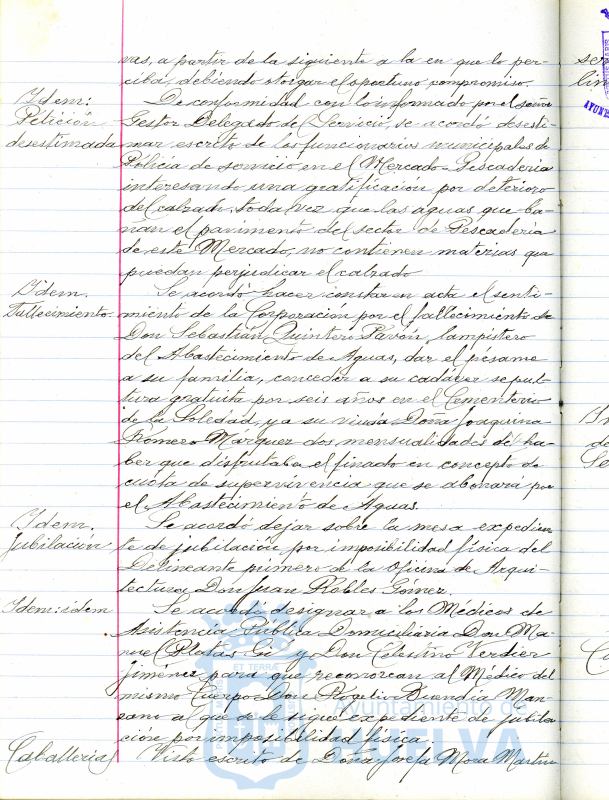 vas, a partir de la siguiente a la en que lo per-
ciba, debiendo otorgar el oportuno compromiso.
Idem:
Petición
desestimada
De conformidad con lo informado por el señor
Gestor Delegado del Servicio, se acordó desesti-
mar escrito de los funcionarios municipales de
Policía de servicio en el Mercado-Pescadería
interesando una gratificación por deterioro
del calzado, toda vez que las aguas que ba-
ñan el pavimento del sector de Pescadería
de este Mercado, no contienen materias que
puedan perjudicar el calzado
Idem.
Fallecimiento.
Se acordó hacer constar en acta el senti-
miento de la Corporación por el fallecimiento de
Don Sebastián Quintero Pavón, lampistero
del Abastecimiento de Aguas, dar el pésame
a su familia, conceder a su cadáver sepul-
tura gratuita por seis años en el Cementerio
de la Soledad, y a su viuda Doña Joaquina
Romero Márquez dos mensualidades del ha-
ber que disfrutaba el finado en concepto de
cuota de supervivencia que se abonará por
el Abastecimiento de Aguas.
Idem.
Jubilación
Se acordó dejar sobre la mesa expedien-
te de jubilación por imposibilidad física del
Delineante primero de la Oficina de Arqui-
tectura, Don Juan Robles Gómez.
Idem: idem
Se acordó designar a los Médicos de
Asistencia Pública Domiciliaria Don Ma-
nuel Platas y Don Celestino Verdier
Jiménez para que reconozcan al Médico del
mismo Cuerpo Don Rogelio Buendía Man-
zano al que se le sigue expediente de jubila-
ción por imposibilidad física.
Caballerías
Visto escrito de Doña Josefa Mora Martín
Ayuntamiento de
HUELVA